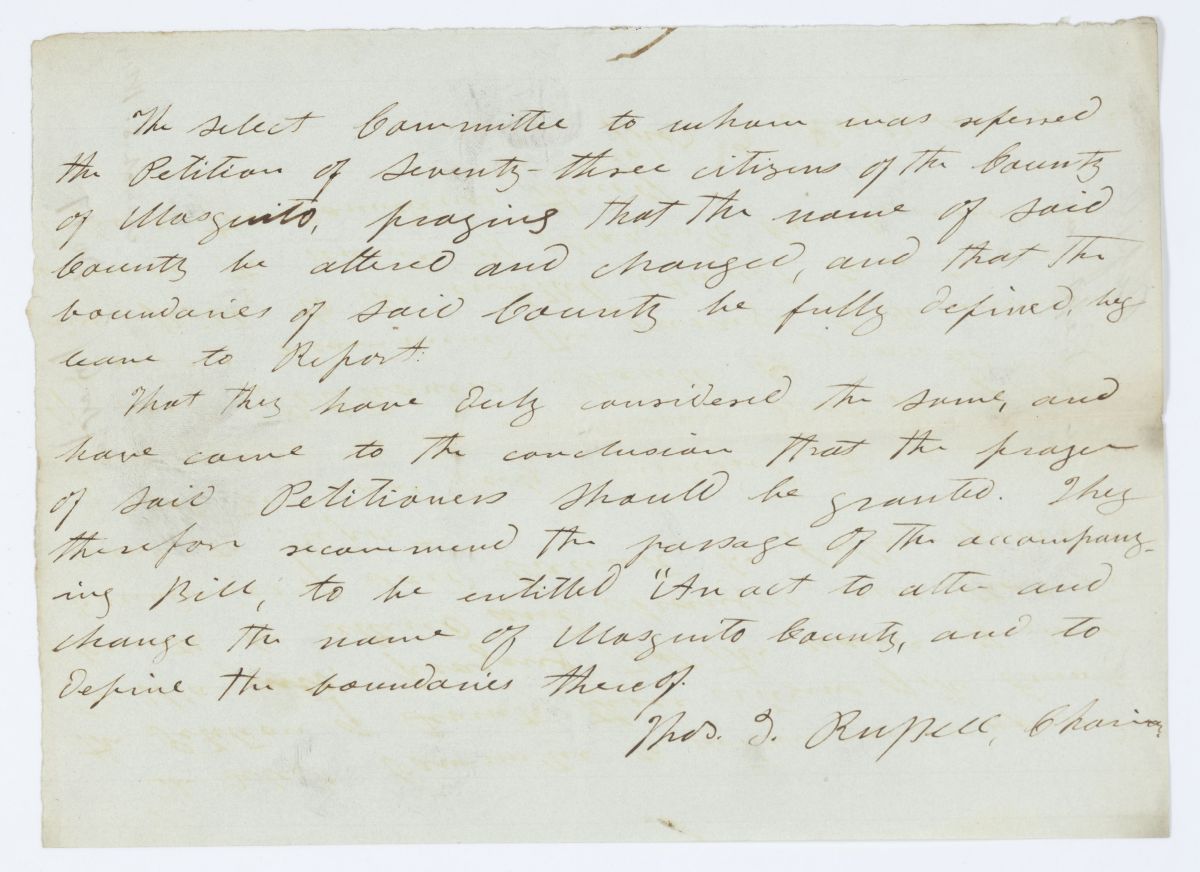 The select Committee to whom was referred
the Petition of Seventy-three citizens of the County
of Mosquito, praying that the name of said
County be altered and changed, and that the
boundaries of said County be fully defined, beg
leave to Report:
That they have duly considered the same, and
have come to the conclusion that the prayer
of said Petitioners should be granted. They
therefore recommend the passage of the accompany-
ing Bill, to be entitled "An act to alter and
change the name of Mosquito County, and to
define the boundaries thereof.
Thos. J. Russell, Chairman